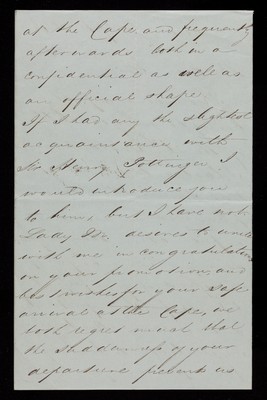 at the Cape, and frequently
afterwards both in a
confidential as well as
an official shape.
If I had any the slightest
acquaintance with
Sir Henry Pottinger I
would introduce you
to him, but I have not.
Lady desires to unite
with me in congratulations
on your promotion, and
best wishes for your safe
arrival at the Cape, we
both regret much that
the suddenness of your
departure prevents us